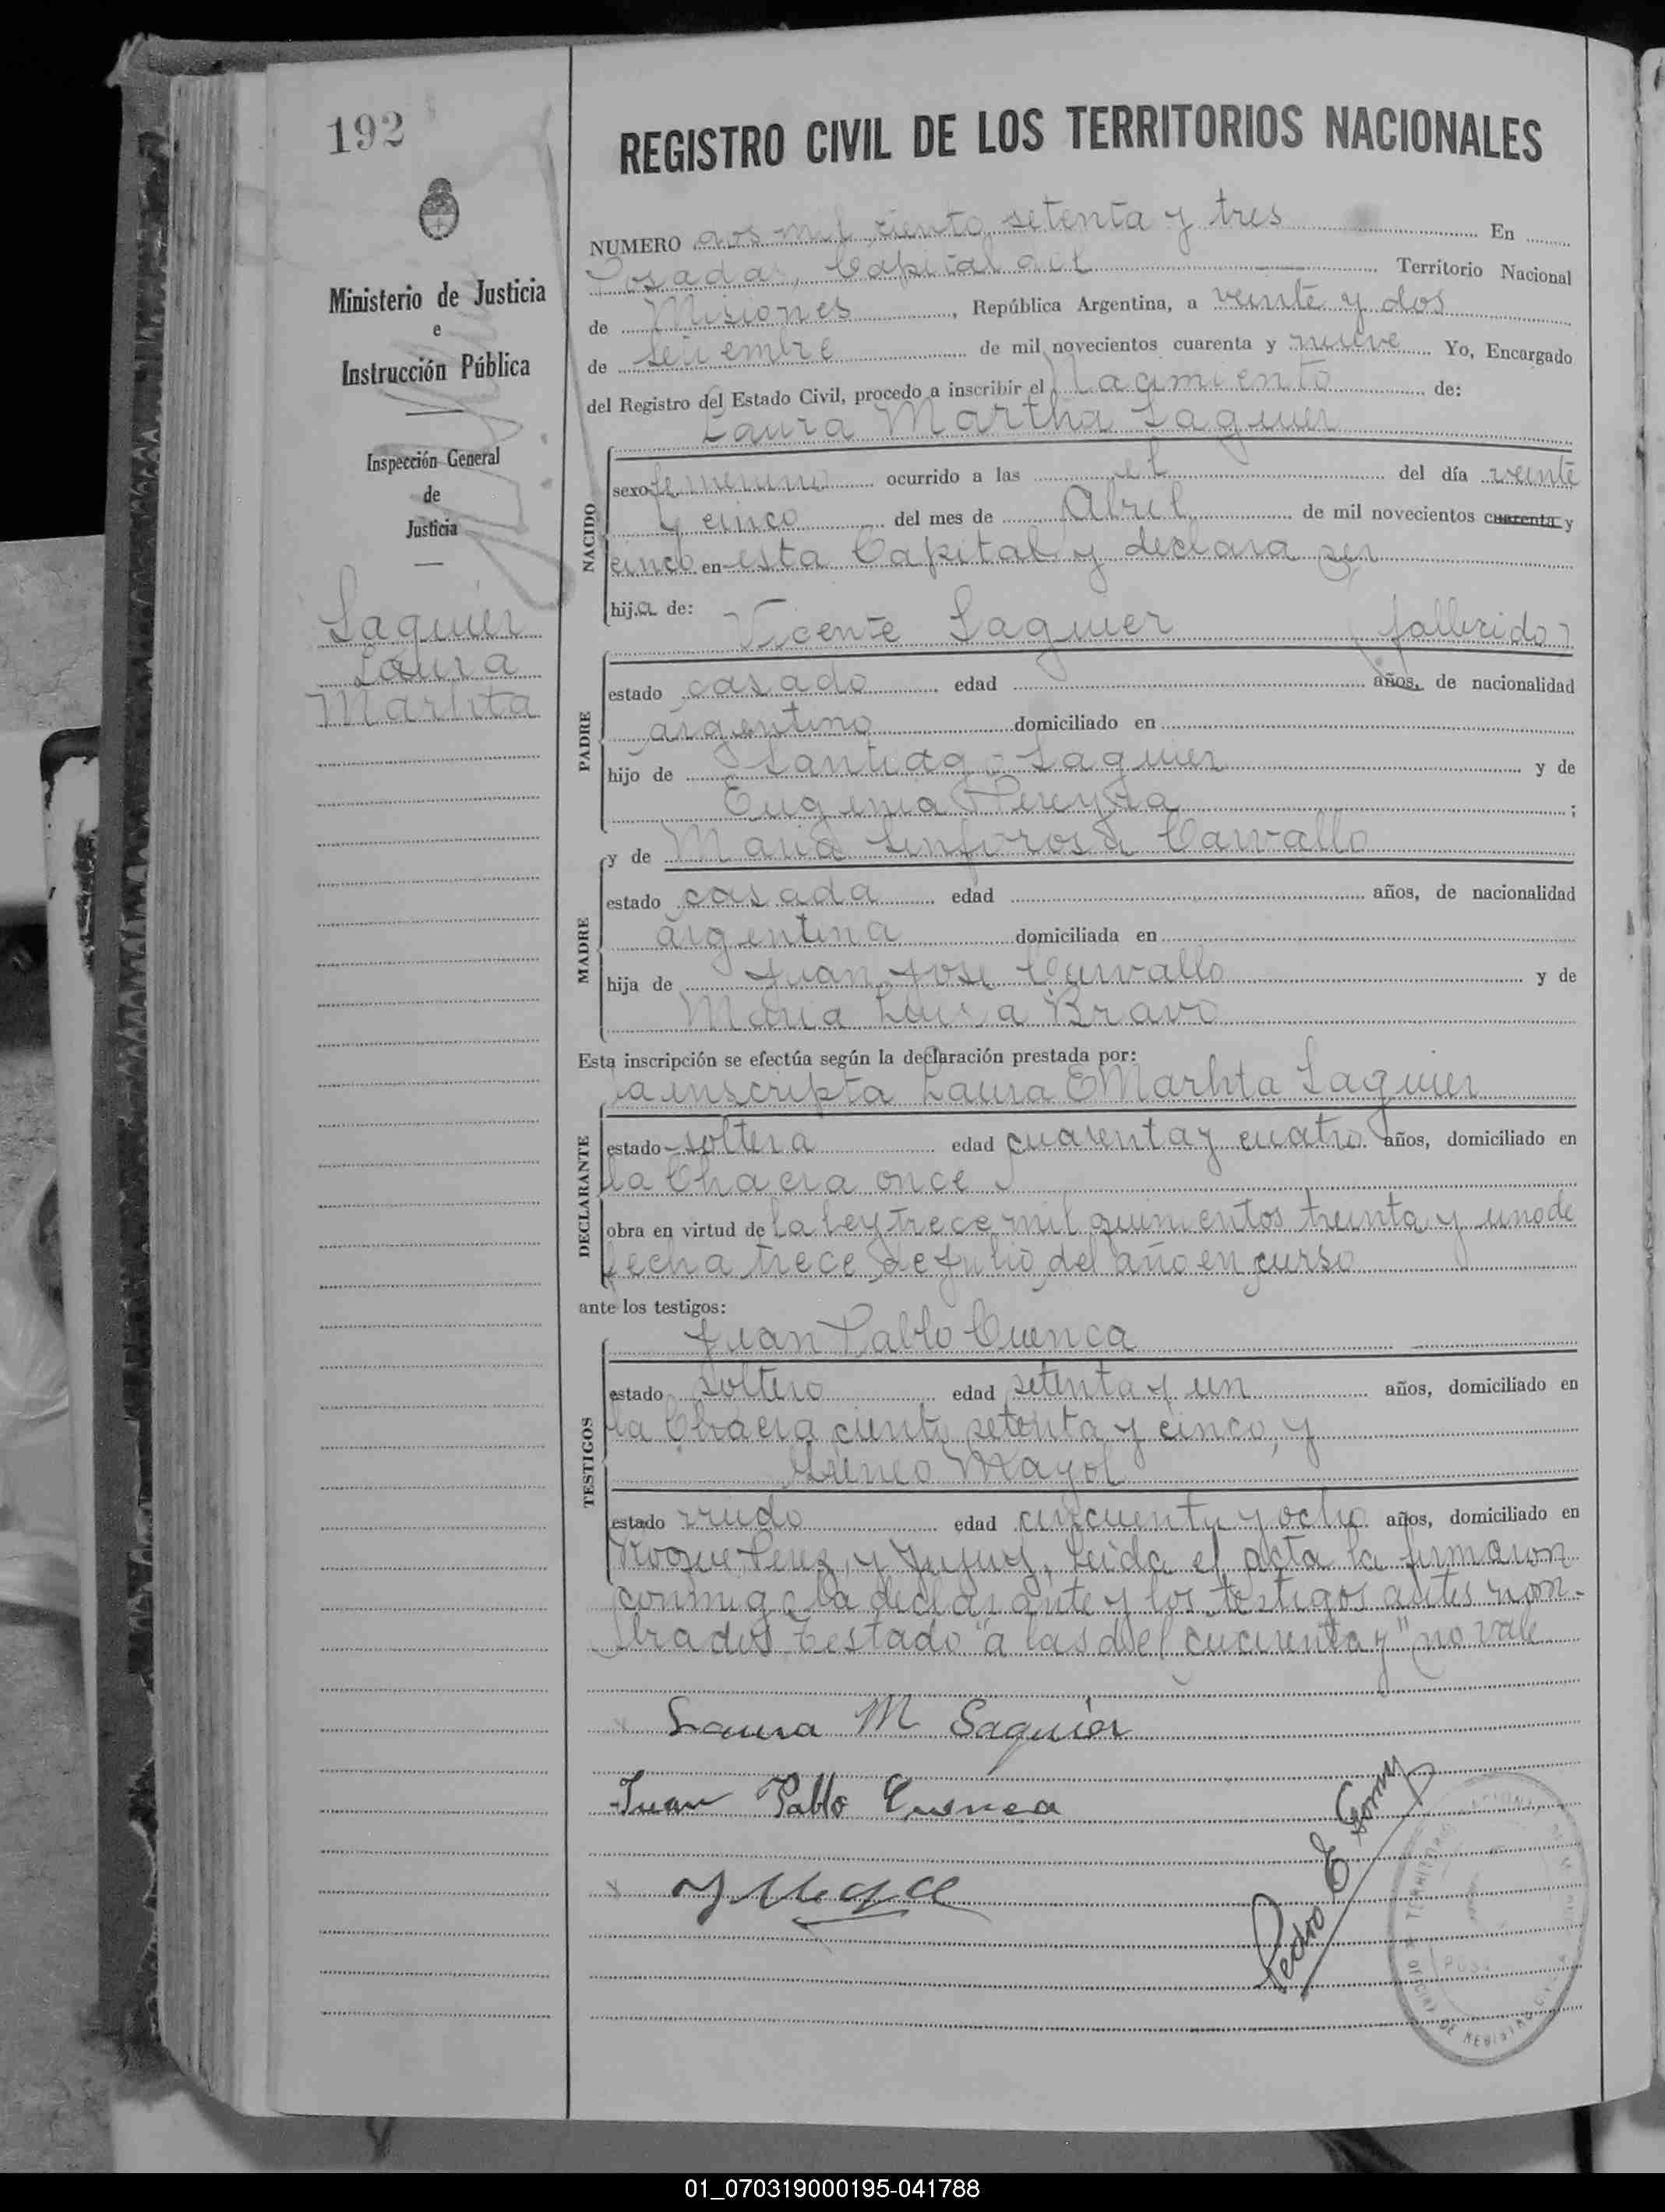 192
REGISTRO CIVIL DE LOS TERRITORIOS NACIONALES
Ministerio de Justicia
e
Instrucción Pública
Inspección General
de
Justicia
Saguier
Laura
Marhta
NUMERO dos mil ciento setenta y tres En
Posadas, Capital del Territorio Nacional
de Misiones, República Argentina, a veinte y dos
de Setiembre de mil novecientos cuarenta y nueve Yo, Encargado
del Registro del Estado Civil, procedo a inscribir el Nacimiento de:
Laura Martha Saguier
NACIDO
sexo femenino ocurrido a las el del día veinte
y cinco del mes de Abril de mil novecientos cuarenta y
cinco en esta Capital y declara ser
hija de:
Vicente Saguier (fallecido)
PADRE
estado casado edad años, de nacionalidad
argentino domiciliado en
hijo de Santiago Saguier y de
Eugenia Pereyra ;
MADRE
y de Maria Sinforosa Carvallo
estado casada edad años, de nacionalidad
argentina domiciliada en
hija de Juan José Carvallo y de
Maria Luisa Bravo
Esta inscripción se efectúa según la declaración prestada por:
la inscripta Laura Marhta Saguier
DECLARANTE
estado soltera edad cuarenta y cuatro años, domiciliado en
la Chacra once
obra en virtud de la ley trece mil quinientos treinta y uno de
fecha trece de Julio del año en curso
ante los testigos:
Juan Pablo Cuenca
TESTIGOS
estado soltero edad setenta y un años, domiciliado en
la Chacra ciento setenta y cinco, y
Mayol
estado viudo edad cincuenta y ocho años, domiciliado en
Roque Perez y Jujuy, leida el acta la firmaron
conmigo la declarante y los testigos antes nom-
brados Testado "a las del cuarenta y" no vale
Laura M Saguier
Juan Pablo Cuenca
Pedro E
OFICINA DE REGISTRO CIVIL
01_070319000195-041788